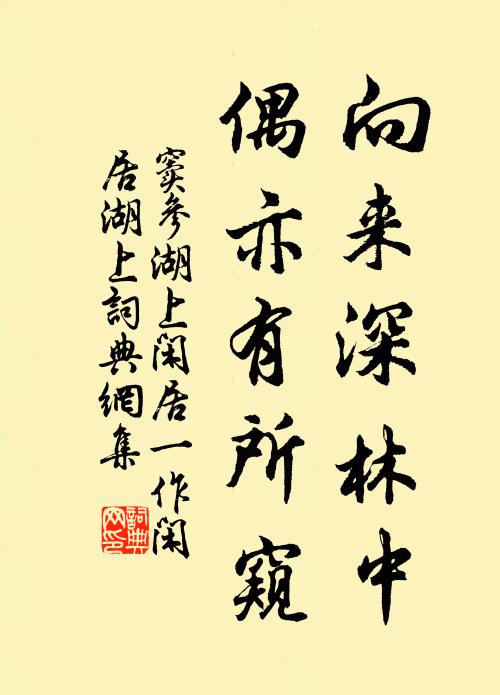 向来深林中
偶亦有所窺
窦參湖上闲居一作闲
居湖上詞典網集
詞典
网印